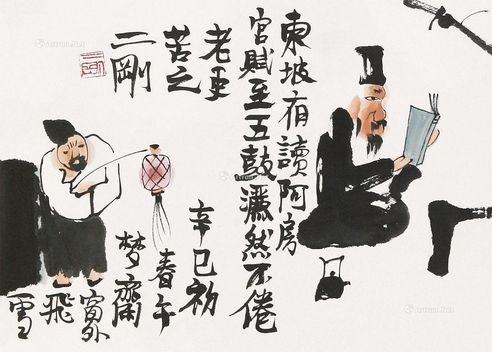 東坡有讀阿房
宮賦至五鼓灑然不倦
老
苦之
二剛
辛巳初
春午
梦齋
窗外
飛
雪